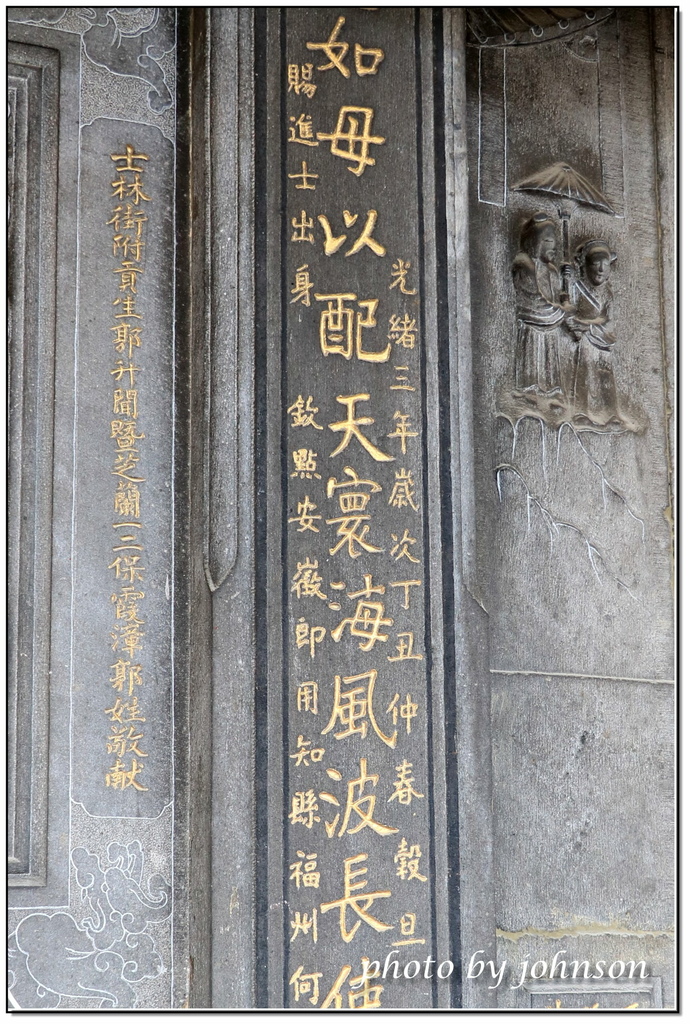 光緒三年歲次丁丑仲春穀旦
如母以配天寰海風波長使
賜進士出身 欽點安徽即用知縣福州何
士林街附貢生郭升聞暨芝蘭一二保霞漳郭姓敬獻
photo by johnson